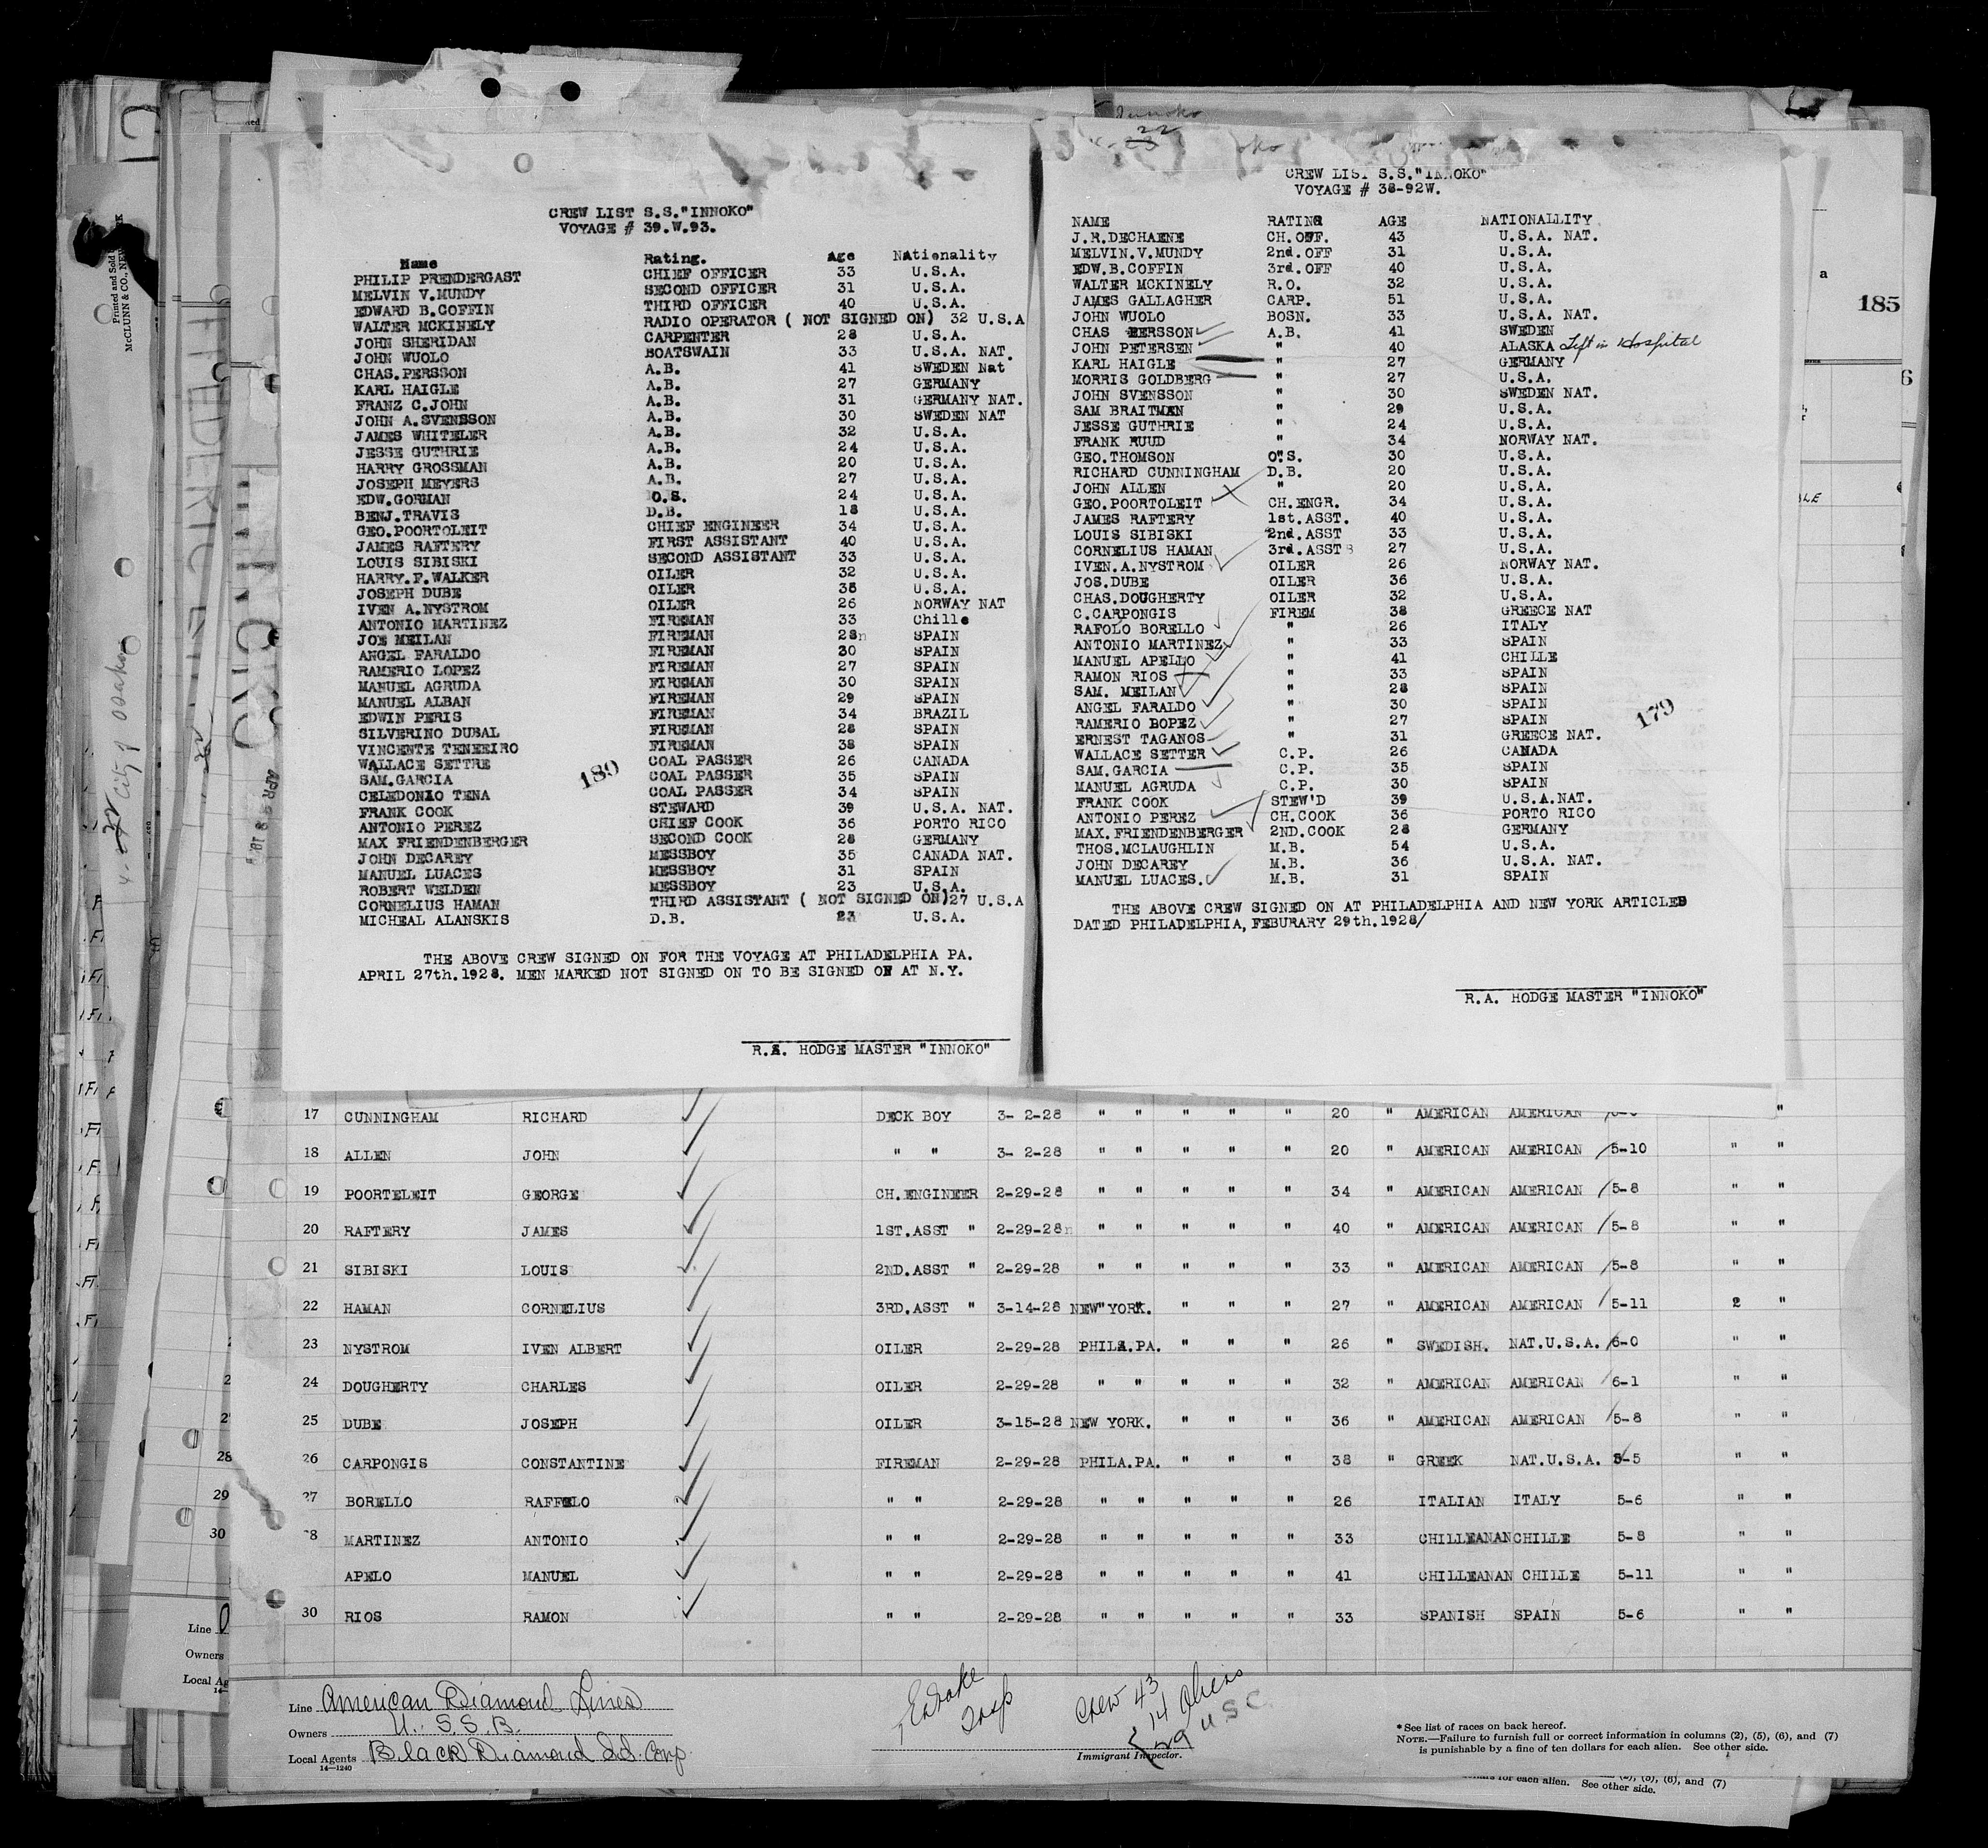 CREW LIST S.S."INNOKO"
VOYAGE # 39.W.93.
Name Rating. Age Nationality
PHILIP PRENDERGAST CHIEF OFFICER 33 U.S.A.
MELVIN V.MUNDY SECOND OFFICER 31 U.S.A.
EDWARD B.COFFIN THIRD OFFICER 40 U.S.A.
WALTER MCKINELY RADIO OPERATOR ( NOT SIGNED ON) 32 U.S.A
JOHN SHERIDAN CARPENTER 28 U.S.A.
JOHN WUOLO BOATSWAIN 33 U.S.A. NAT.
CHAS.PERSSON A.B. 41 SWEDEN Nat
KARL HAIGLE A.B. 27 GERMANY
FRANZ C.JOHN A.B. 31 GERMANY NAT.
JOHN A.SVENSSON A.B. 30 SWEDEN NAT
JAMES WHITELER A.B. 32 U.S.A.
JESSE GUTHRIE A.B. 24 U.S.A.
HARRY GROSSMAN A.B. 20 U.S.A.
JOSEPH MEYERS A.B. 27 U.S.A.
EDW.GORMAN O.S. 24 U.S.A.
BENJ.TRAVIS D.B. 18 U.S.A.
GEO.POORTOLEIT CHIEF ENGINEER 34 U.S.A.
JAMES RAFTERY FIRST ASSISTANT 40 U.S.A.
LOUIS SIBISKI SECOND ASSISTANT 33 U.S.A.
HARRY.F.WALKER OILER 32 U.S.A.
JOSEPH DUBE OILER 36 U.S.A.
IVEN A.NYSTROM OILER 26 NORWAY NAT
ANTONIO MARTINEZ FIREMAN 33 Chille
JOE MEILAN FIREMAN 28n SPAIN
ANGEL FARALDO FIREMAN 30 SPAIN
RAMERIO LOPEZ FIREMAN 27 SPAIN
MANUEL AGRUDA FIREMAN 30 SPAIN
MANUEL ALBAN FIREMAN 29 SPAIN
EDWIN PERIS FIREMAN 34 BRAZIL
SILVERINO DUBAL FIREMAN 28 SPAIN
VINCENTE TENEEIRO FIREMAN 38 SPAIN
WALLACE SETTRE COAL PASSER 26 CANADA
SAM.GARCIA COAL PASSER 35 SPAIN
CELEDONIO TENA COAL PASSER 34 SPAIN
FRANK COOK STEWARD 39 U.S.A. NAT.
ANTONIO PEREZ CHIEF COOK 36 PORTO RICO
MAX FRIENDENBERGER SECOND COOK 28 GERMANY
JOHN DECAREY MESSBOY 35 CANADA NAT.
MANUEL LUACES MESSBOY 31 SPAIN
ROBERT WELDEN MESSBOY 23 U.S.A.
CORNELIUS HAMAN THIRD ASSISTANT ( NOT SIGNED ON)27 U.S.A
MICHEAL ALANSKIS D.B. 23 U.S.A.
189
THE ABOVE CREW SIGNED ON FOR THE VOYAGE AT PHILADELPHIA PA.
APRIL 27th.1928. MEN MARKED NOT SIGNED ON TO BE SIGNED ON AT N.Y.
R.A. HODGE MASTER "INNOKO"
CREW LIST S.S."INNOKO"
VOYAGE # 38-92W.
NAME RATING AGE NATIONALLITY
J.R.DECHAENE CH.OFF. 43 U.S.A. NAT.
MELVIN.V.MUNDY 2nd.OFF 31 U.S.A.
EDW.B.COFFIN 3rd.OFF 40 U.S.A.
WALTER MCKINELY R.O. 32 U.S.A.
JAMES GALLAGHER CARP. 51 U.S.A.
JOHN WUOLO BOSN. 33 U.S.A. NAT.
CHAS PERSSON A.B. 41 SWEDEN
JOHN PETERSEN " 40 ALASKA Left in Hospital
KARL HAIGLE " 27 GERMANY
MORRIS GOLDBERG " 27 U.S.A.
JOHN SVENSSON " 30 SWEDEN NAT.
SAM BRAITMAN " 29 U.S.A.
JESSE GUTHRIE " 24 U.S.A.
FRANK RUUD " 34 NORWAY NAT.
GEO.THOMSON O.S. 30 U.S.A.
RICHARD CUNNINGHAM D.B. 20 U.S.A.
JOHN ALLEN " 20 U.S.A.
GEO.POORTOLEIT CH.ENGR. 34 U.S.A.
JAMES RAFTERY 1st.ASST. 40 U.S.A.
LOUIS SIBISKI 2nd.ASST 33 U.S.A.
CORNELIUS HAMAN 3rd.ASST 27 U.S.A.
IVEN.A.NYSTROM OILER 26 NORWAY NAT.
JOS.DUBE OILER 36 U.S.A.
CHAS.DOUGHERTY OILER 32 U.S.A.
C.CARPONGIS FIREM 38 GREECE NAT
RAFOLO BORELLO " 26 ITALY
ANTONIO MARTINEZ " 33 SPAIN
MANUEL APELLO " 41 CHILLE
RAMON RIOS " 33 SPAIN
SAM. MEILAN " 28 SPAIN
ANGEL FARALDO " 30 SPAIN
RAMERIO BOPEZ " 27 SPAIN
ERNEST TAGANOS " 31 GREECE NAT.
WALLACE SETTER C.P. 26 CANADA
SAM.GARCIA C.P. 35 SPAIN
MANUEL AGRUDA C.P. 30 SPAIN
FRANK COOK STEW'D 39 U.S.A.NAT.
ANTONIO PEREZ CH.COOK 36 PORTO RICO
MAX. FRIENDENBERGER 2ND.COOK 28 GERMANY
THOS.MCLAUGHLIN M.B. 54 U.S.A.
JOHN DECAREY M.B. 36 U.S.A. NAT.
MANUEL LUACES. M.B. 31 SPAIN
179
185
THE ABOVE CREW SIGNED ON AT PHILADELPHIA AND NEW YORK ARTICLES
DATED PHILADELPHIA, FEBURARY 29th.1928/
R.A. HODGE MASTER "INNOKO"
17 CUNNINGHAM RICHARD DECK BOY 3- 2-28 " " " " " 20 " AMERICAN AMERICAN "
18 ALLEN JOHN " " 3- 2-28 " " " " " 20 " AMERICAN AMERICAN 5-10 " "
19 POORTELEIT GEORGE CH.ENGINEER 2-29-28 " " " " " 34 " AMERICAN AMERICAN 5-8 " "
20 RAFTERY JAMES 1ST.ASST " 2-29-28 " " " " " 40 " AMERICAN AMERICAN 5-8 " "
21 SIBISKI LOUIS 2ND.ASST " 2-29-28 " " " " " 33 " AMERICAN AMERICAN 5-8 " "
22 HAMAN CORNELIUS 3RD.ASST " 3-14-28 NEW YORK. " " " 27 " AMERICAN AMERICAN 5-11 2 "
23 NYSTROM IVEN ALBERT OILER 2-29-28 PHILA.PA. " " " 26 " SWEDISH. NAT.U.S.A. 6-0 " "
24 DOUGHERTY CHARLES OILER 2-29-28 " " " " " 32 " AMERICAN AMERICAN 6-1 " "
25 DUBE JOSEPH OILER 3-15-28 NEW YORK. " " " 36 " AMERICAN AMERICAN 5-8 " "
26 CARPONGIS CONSTANTINE FIREMAN 2-29-28 PHILA.PA. " " " 38 " GREEK NAT.U.S.A. 5-5 " "
27 BORELLO RAFFELO " " 2-29-28 " " " " " 26 ITALIAN ITALY 5-6 " "
28 MARTINEZ ANTONIO " " 2-29-28 " " " " " 33 CHILLEANAN CHILLE 5-8 " "
APELO MANUEL " " 2-29-28 " " " " " 41 CHILLEANAN CHILLE 5-11 " "
30 RIOS RAMON " " 2-29-28 " " " " " 33 SPANISH SPAIN 5-6 " "
Line American Diamond Lines
Owners U. S. S. B.
Local Agents Black Diamond S.S. Corp.
14—1240
Crew 43
14 Aliens
29 U.S.C.
Immigrant Inspector.
*See list of races on back hereof.
NOTE.—Failure to furnish full or correct information in columns (2), (5), (6), and (7)
is punishable by a fine of ten dollars for each alien. See other side.
for each alien. See other side.
Printed and Sold
McCLUNN & CO., NEW
City of Osaka
28
29
30
Line
Owners
Local Ag